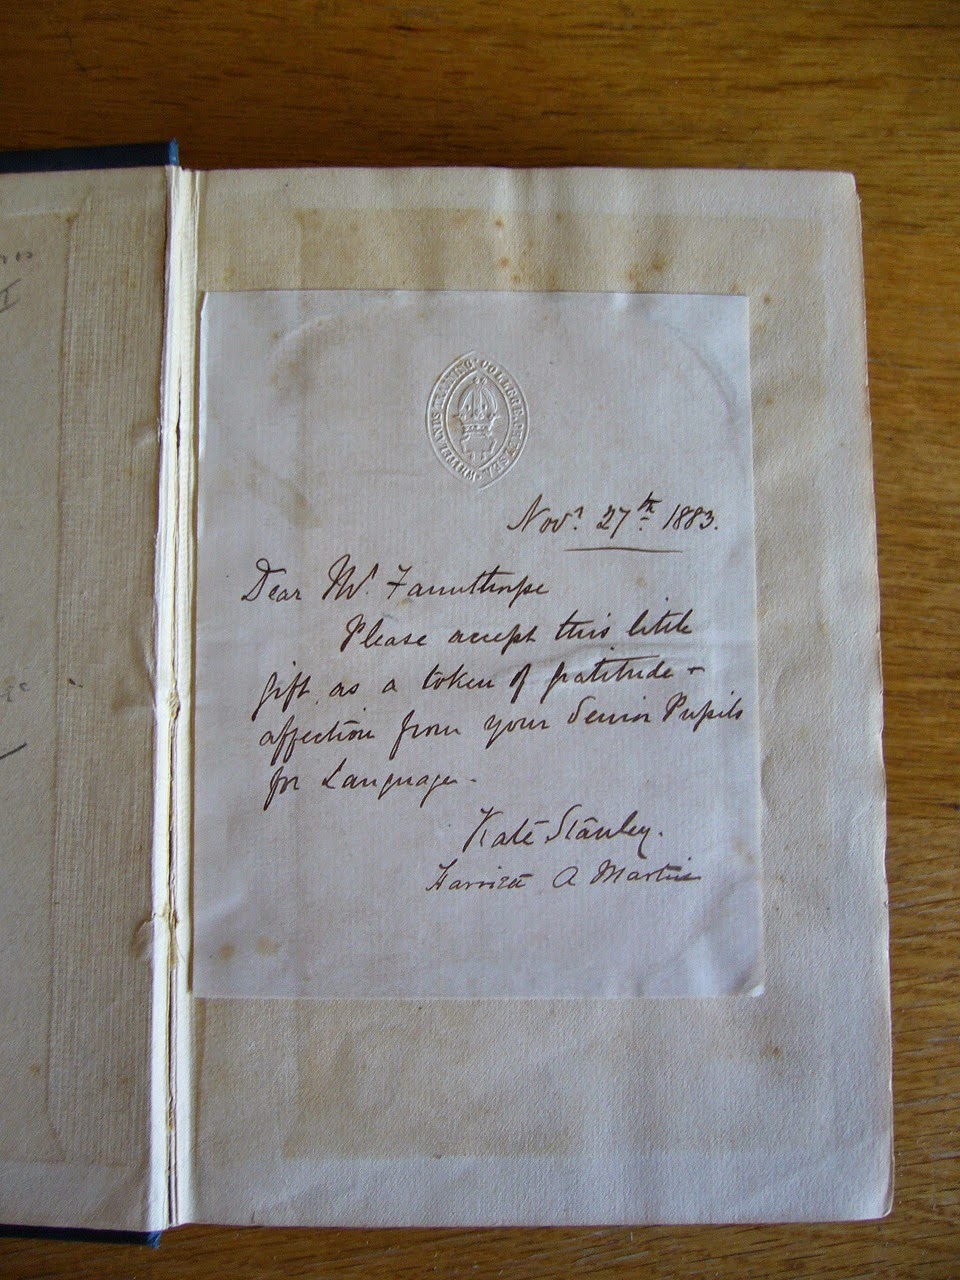 WHITELANDS TRAINING COLLEGE CHELSEA
Nov.r 27th. 1883.
Dear Mr. Faunthorpe
Please accept this little
gift as a token of gratitude +
affection from your Senior Pupils
for Language.
Kate Stanley.
Harriet A Martin